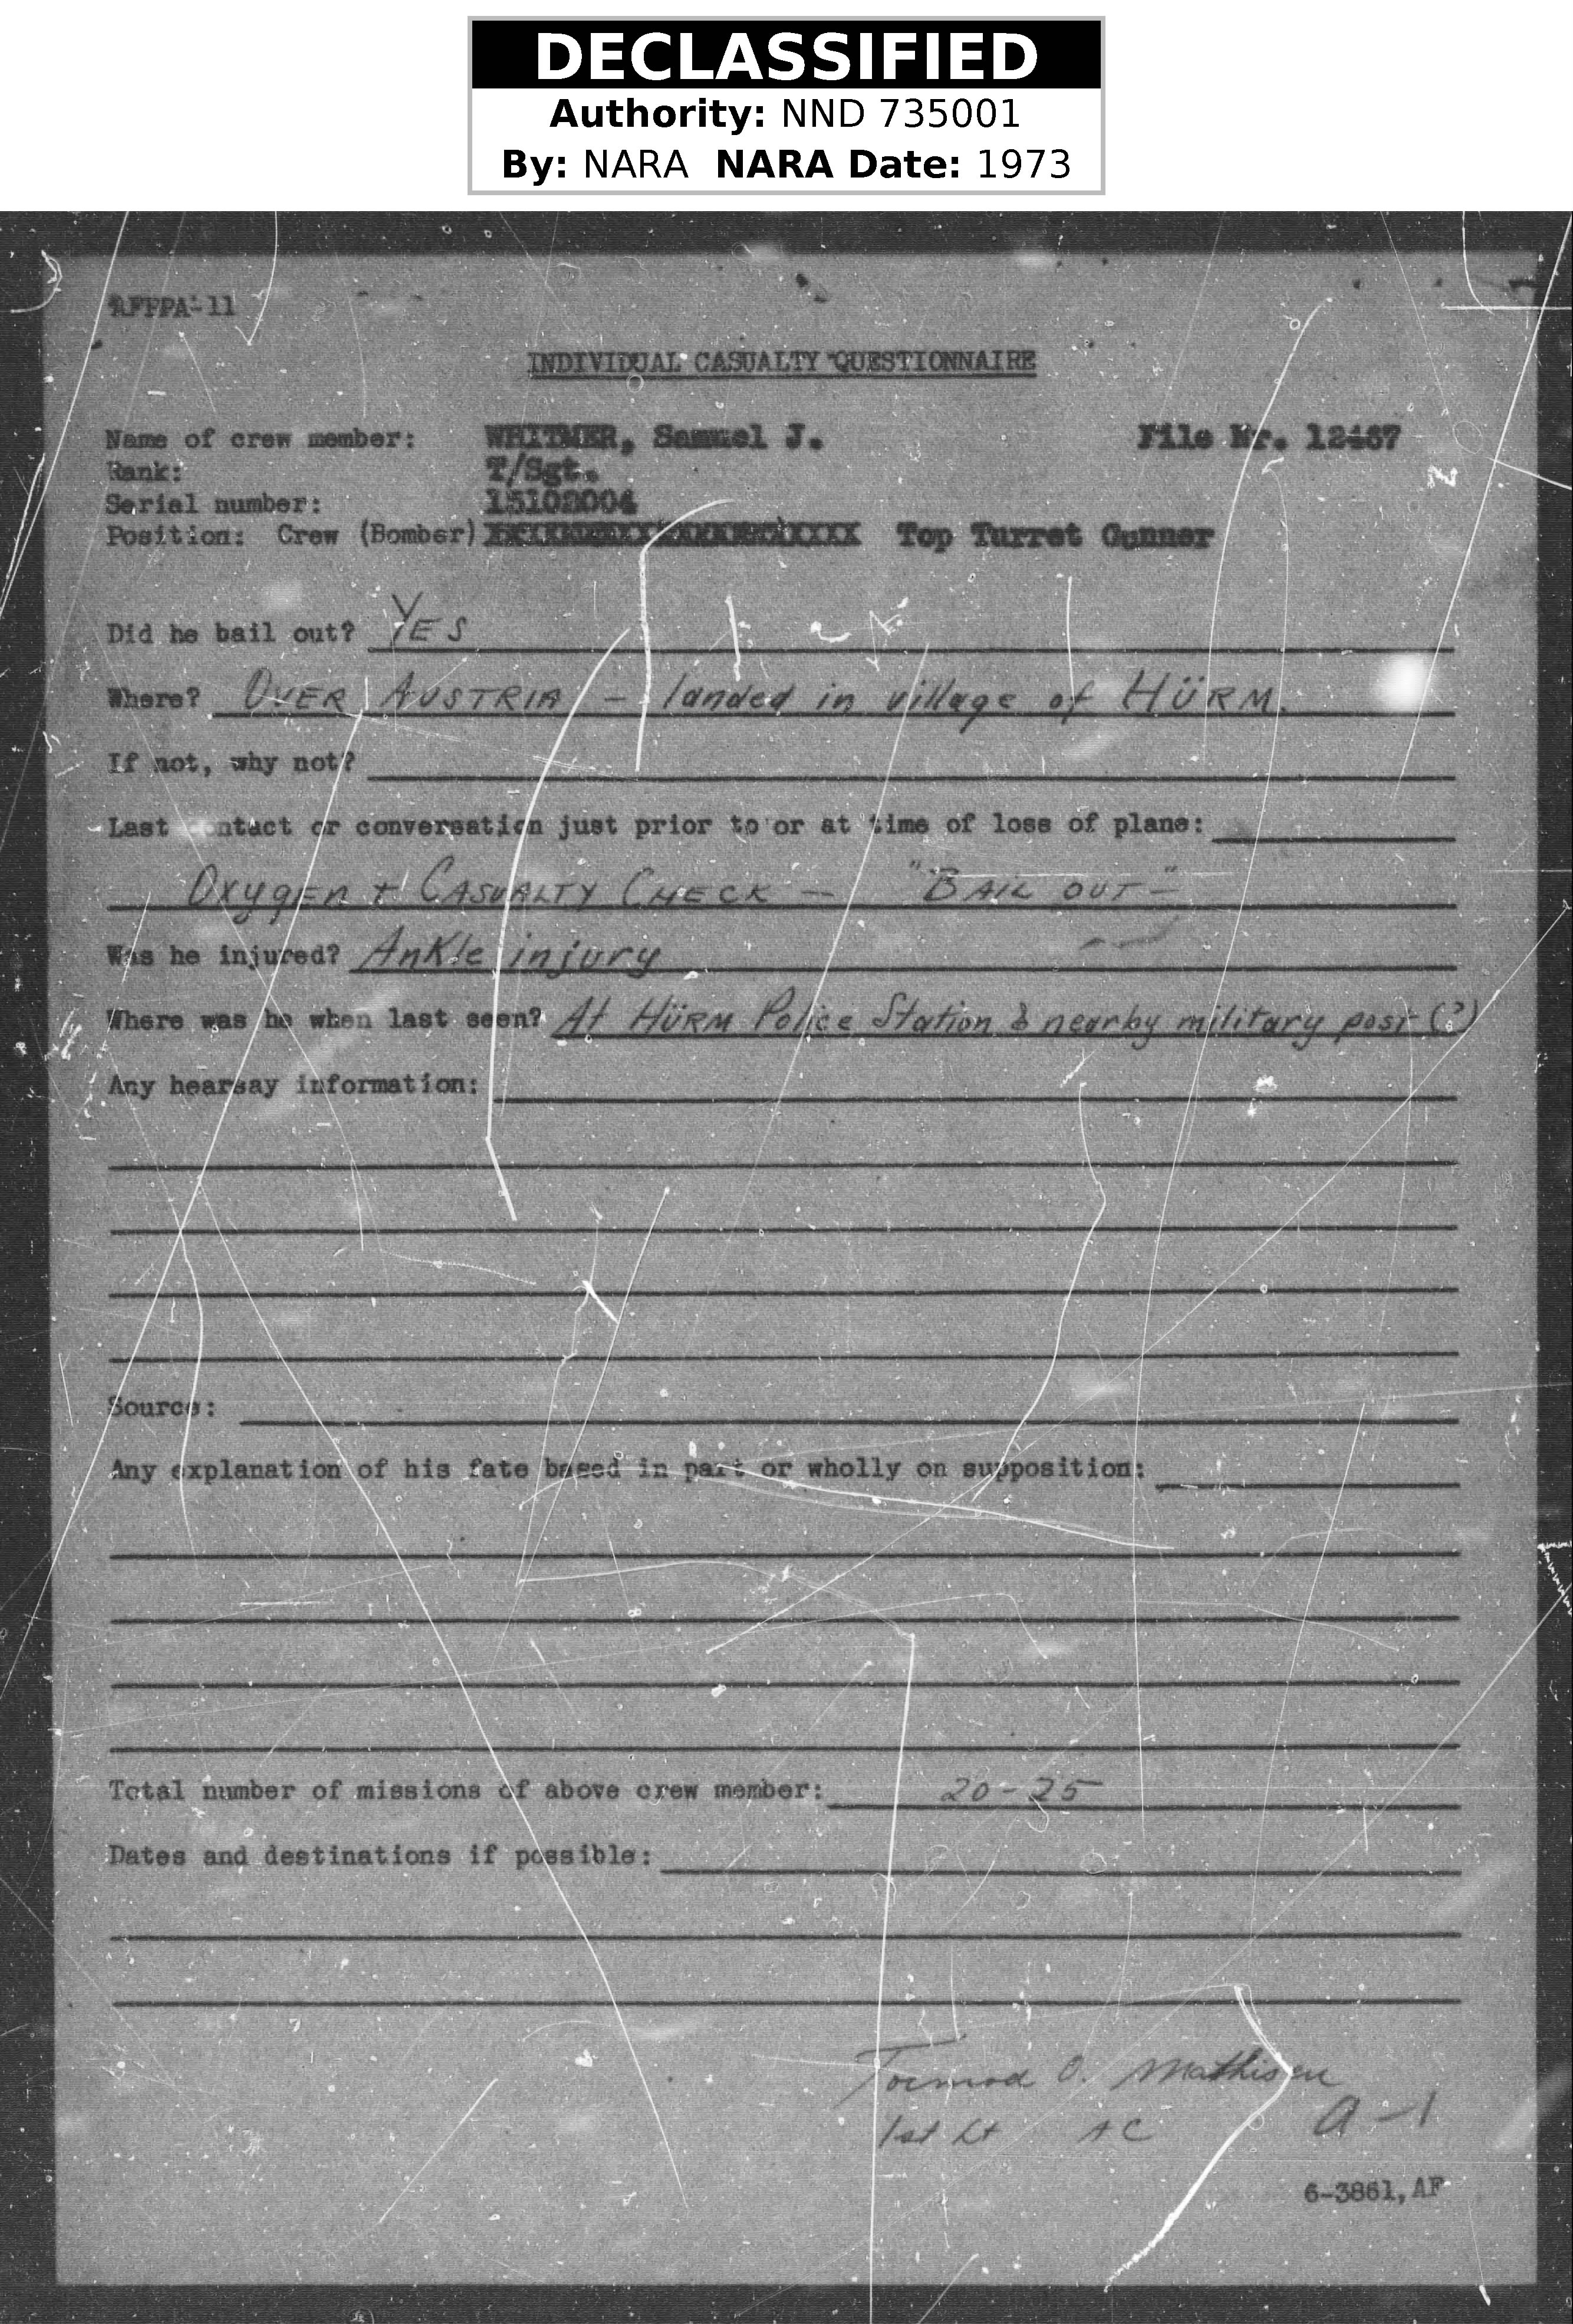 DECLASSIFIED
Authority: NND 735001
By: NARA NARA Date: 1973
AFPPA-11
INDIVIDUAL CASUALTY QUESTIONNAIRE
Name of crew member: WHITMER, Samuel J. File Nr. 12467
Rank: T/Sgt.
Serial number: 15102004
Position: Crew (Bomber) Top Turret Gunner
Did he bail out? YES
Where? OVER AUSTRIA - landed in village of HÜRM.
If not, why not?
Last contact or conversation just prior to or at time of loss of plane:
OXYGEN + CASUALTY CHECK - "BAIL OUT-"
Was he injured? Ankle injury
Where was he when last seen? At HÜRM Police Station & nearby military post (?)
Any hearsay information:
Source:
Any explanation of his fate based in part or wholly on supposition:
Total number of missions of above crew member: 20-25
Dates and destinations if possible:
Tormod O. Mathisen
1st Lt AC a-1
6-3861, AF